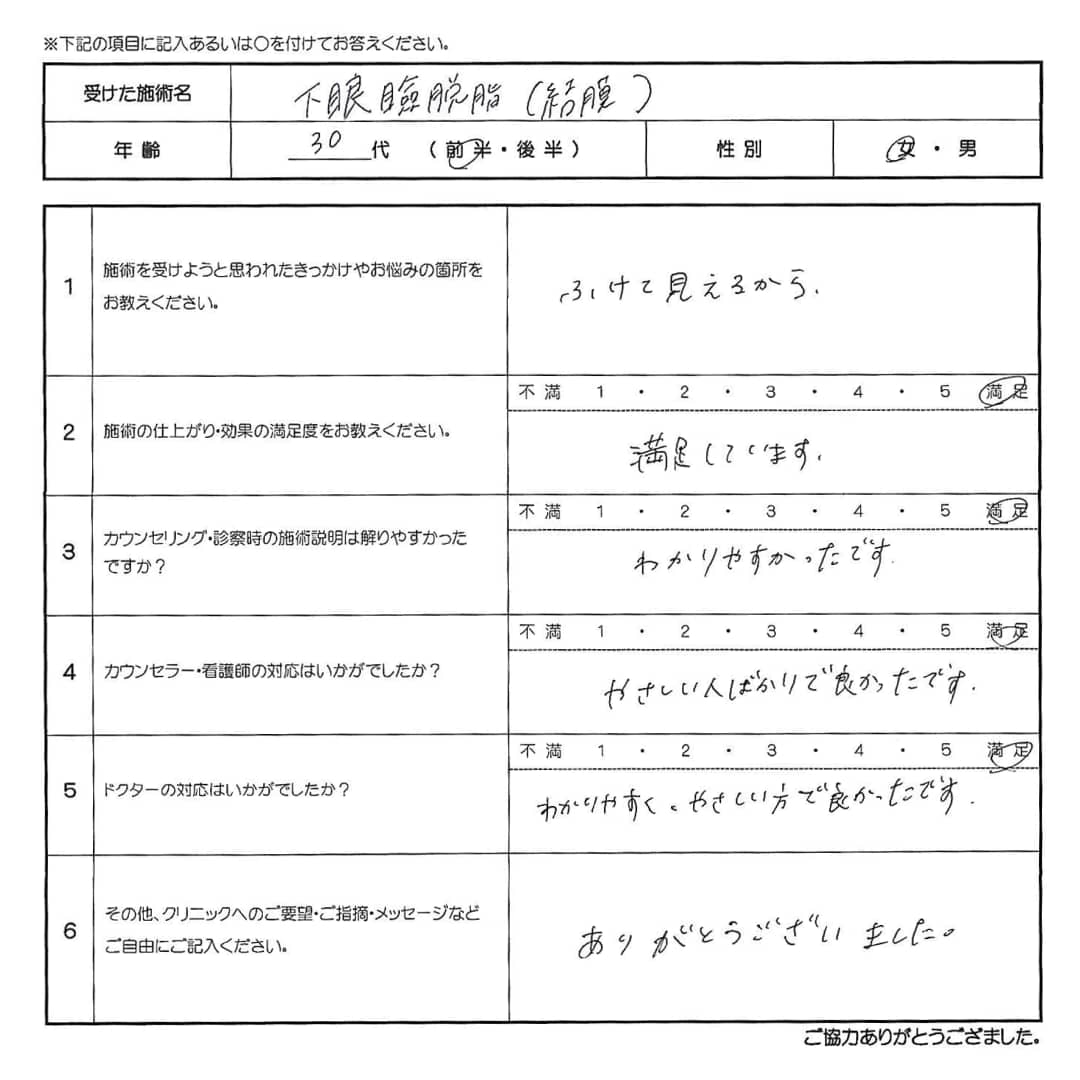 ※下記の項目に記入あるいは〇を付けてお答えください。
受けた施術名 下眼瞼脱脂(結膜)
年齢 30代 (前半・後半) 性別 女・男
1 施術を受けようと思われたきっかけやお悩みの箇所を
お教えください。
ふけて見えるから.
2 施術の仕上がり・効果の満足度をお教えください。
不満 1 ・ 2 ・ 3 ・ 4 ・ 5 満足
満足しています.
3 カウンセリング・診察時の施術説明は解りやすかった
ですか?
不満 1 ・ 2 ・ 3 ・ 4 ・ 5 満足
わかりやすかったです.
4 カウンセラー・看護師の対応はいかがでしたか?
不満 1 ・ 2 ・ 3 ・ 4 ・ 5 満足
やさしい人ばかりで良かったです.
5 ドクターの対応はいかがでしたか?
不満 1 ・ 2 ・ 3 ・ 4 ・ 5 満足
わかりやすく、やさしい方で良かったです.
6 その他、クリニックへのご要望・ご指摘・メッセージなど
ご自由にご記入ください。
ありがとうございました。
ご協力ありがとうござました。